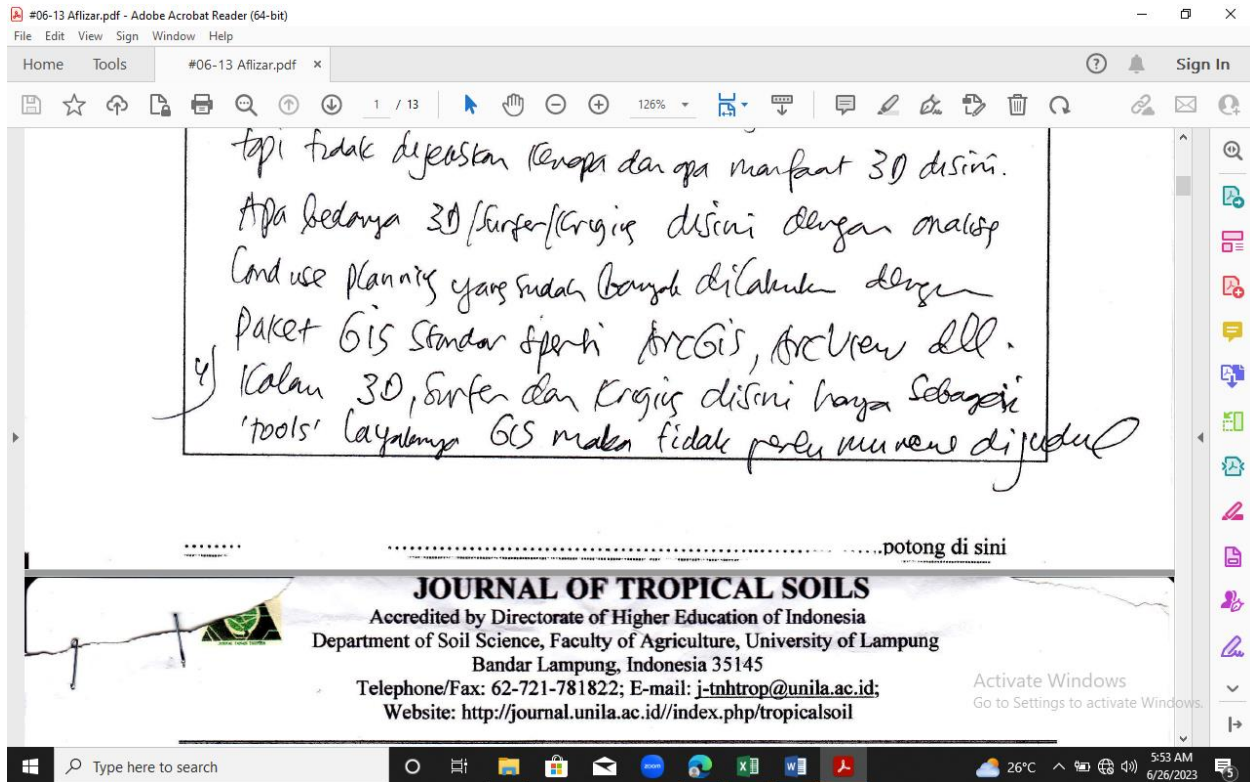 #06-13 Aflizar.pdf - Adobe Acrobat Reader (64-bit)
File Edit View Sign Window Help
Home Tools #06-13 Aflizar.pdf × Sign In
1 / 13 126%
tapi tidak dijelaskan kenapa dan apa manfaat 3D disini.
Apa bedanya 3D/Surfer/Kriging disini dengan analisp
Land use planning yang sudah banyak dilakukan dengan
Paket GIS Standar sperti ArcGis, ArcView dll.
4) Kalau 3D, Surfer dan Kriging disini hanya sebagai
'tools' layaknya GIS maka tidak perlu muncul dijudul
potong di sini
JOURNAL OF TROPICAL SOILS
Accredited by Directorate of Higher Education of Indonesia
Department of Soil Science, Faculty of Agriculture, University of Lampung
Bandar Lampung, Indonesia 35145
Telephone/Fax: 62-721-781822; E-mail: j-tnhtrop@unila.ac.id;
Website: http://journal.unila.ac.id//index.php/tropicalsoil
Activate Windows
Go to Settings to activate Windows.
Type here to search
zoom
26°C
5:53 AM
6/26/2023
5